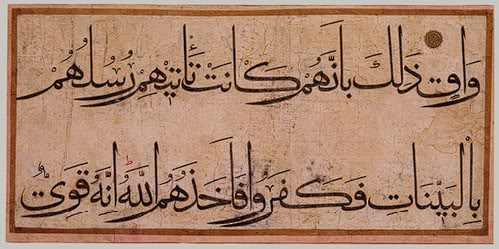 وَاقٍ ذَٰلِكَ بِأَنَّهُمْ كَانَتْ تَأْتِيهِمْ رُسُلُهُمْ
بِالْبَيِّنَاتِ فَكَفَرُوا فَأَخَذَهُمُ اللَّهُ إِنَّهُ قَوِيٌّ